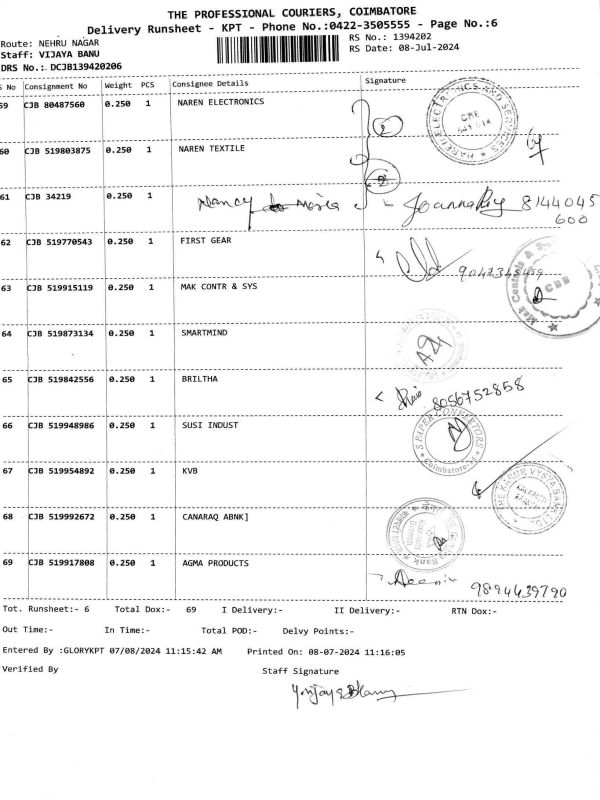 THE PROFESSIONAL COURIERS, COIMBATORE
Delivery Runsheet - KPT - Phone No.:0422-3505555 - Page No.:6
Route: NEHRU NAGAR RS No.: 1394202
Staff: VIJAYA BANU RS Date: 08-Jul-2024
DRS No.: DCJB139420206
S No Consignment No Weight PCS Consignee Details Signature
59 CJB 80487560 0.250 1 NAREN ELECTRONICS
60 CJB 519803875 0.250 1 NAREN TEXTILE
61 CJB 34219 0.250 1 Nancy 8144045
600
62 CJB 519770543 0.250 1 FIRST GEAR
63 CJB 519915119 0.250 1 MAK CONTR & SYS
64 CJB 519873134 0.250 1 SMARTMIND
65 CJB 519842556 0.250 1 BRILTHA 8056752858
66 CJB 519948986 0.250 1 SUSI INDUST
67 CJB 519954892 0.250 1 KVB
68 CJB 519992672 0.250 1 CANARAQ ABNK]
69 CJB 519917808 0.250 1 AGMA PRODUCTS 9894439790
Tot. Runsheet:- 6 Total Dox:- 69 I Delivery:- II Delivery:- RTN Dox:-
Out Time:- In Time:- Total POD:- Delvy Points:-
Entered By :GLORYKPT 07/08/2024 11:15:42 AM Printed On: 08-07-2024 11:16:05
Verified By Staff Signature